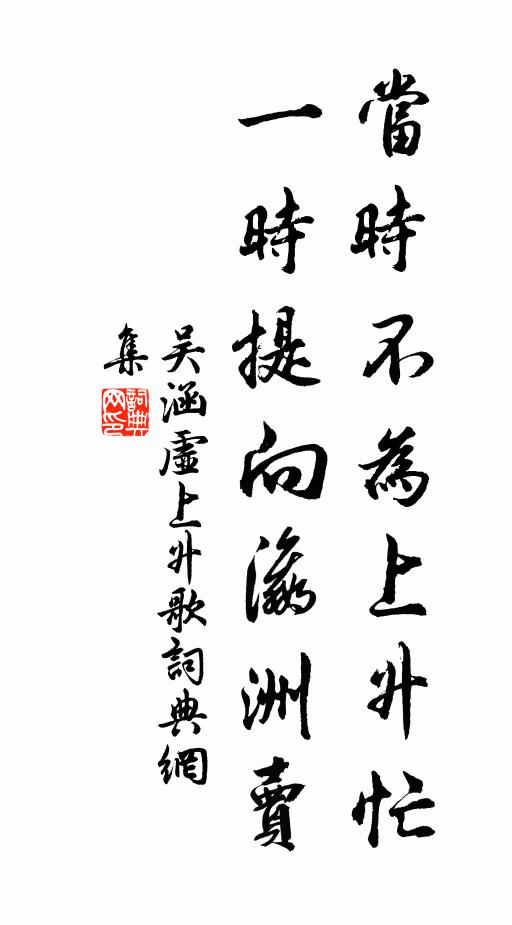 當時不為上升忙
一時提向瀛洲賣
吴涵虛上升歌詞典網
集
詞典網印